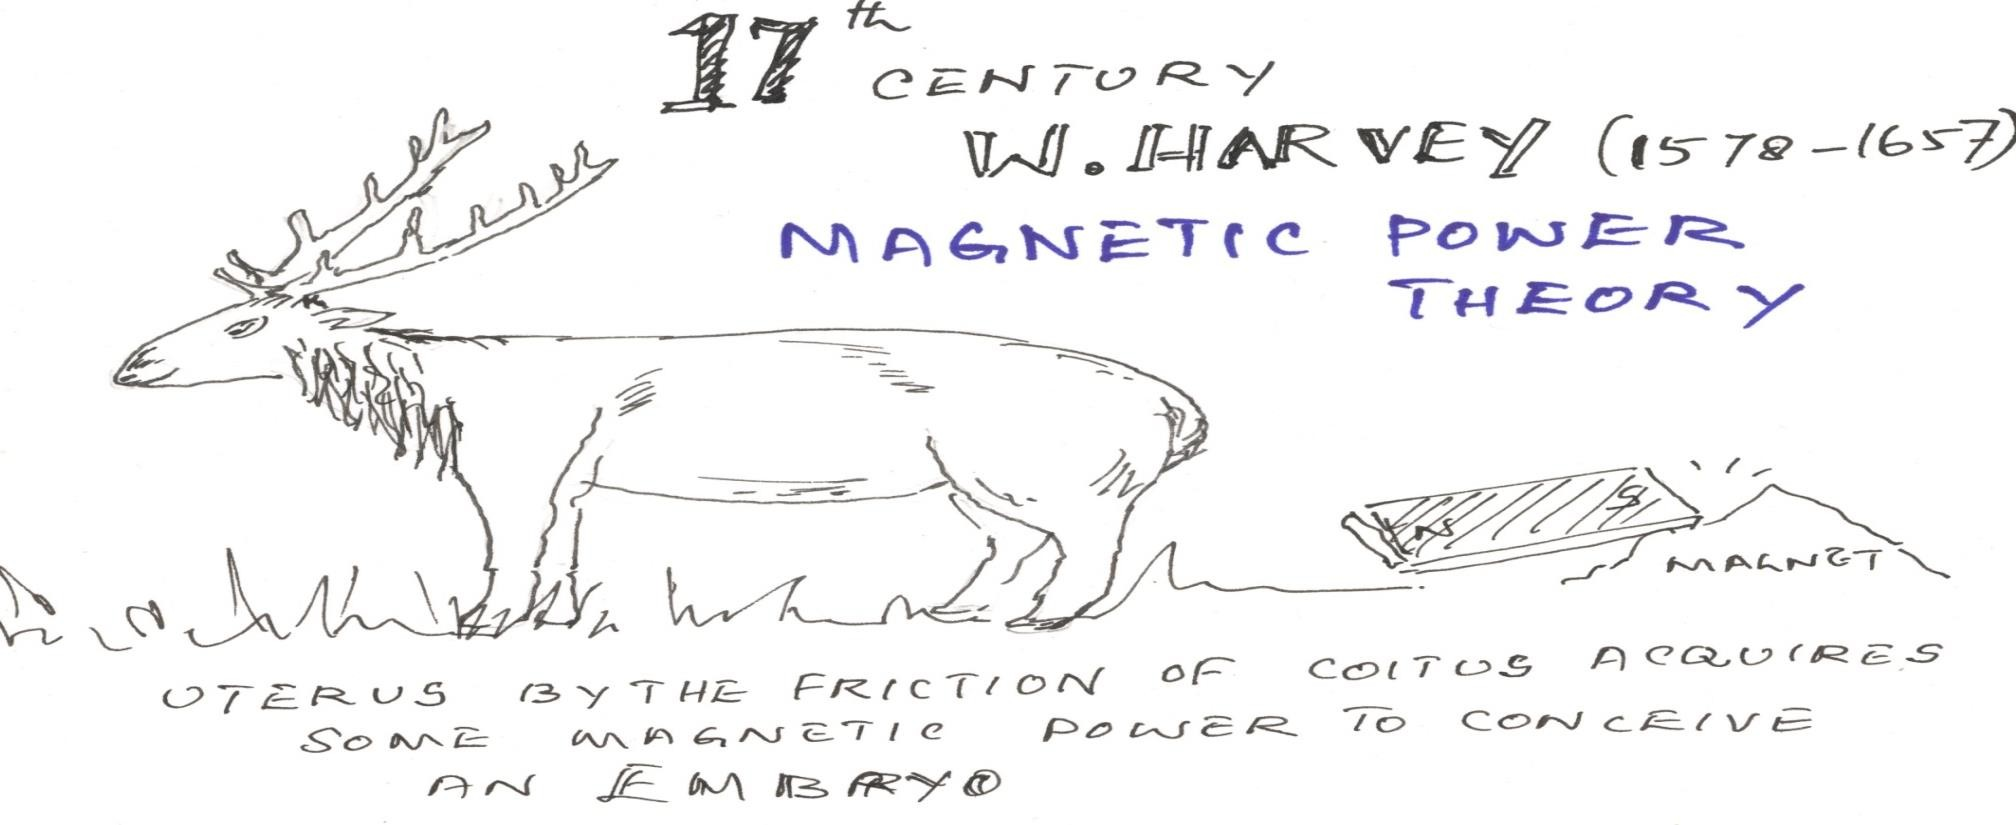 17th
CENTURY
W. HARVEY (1578-1657)
MAGNETIC POWER
THEORY
N S
MAGNET
UTERUS BY THE FRICTION OF COITUS ACQUIRES
SOME MAGNETIC POWER TO CONCEIVE
AN EMBRYO